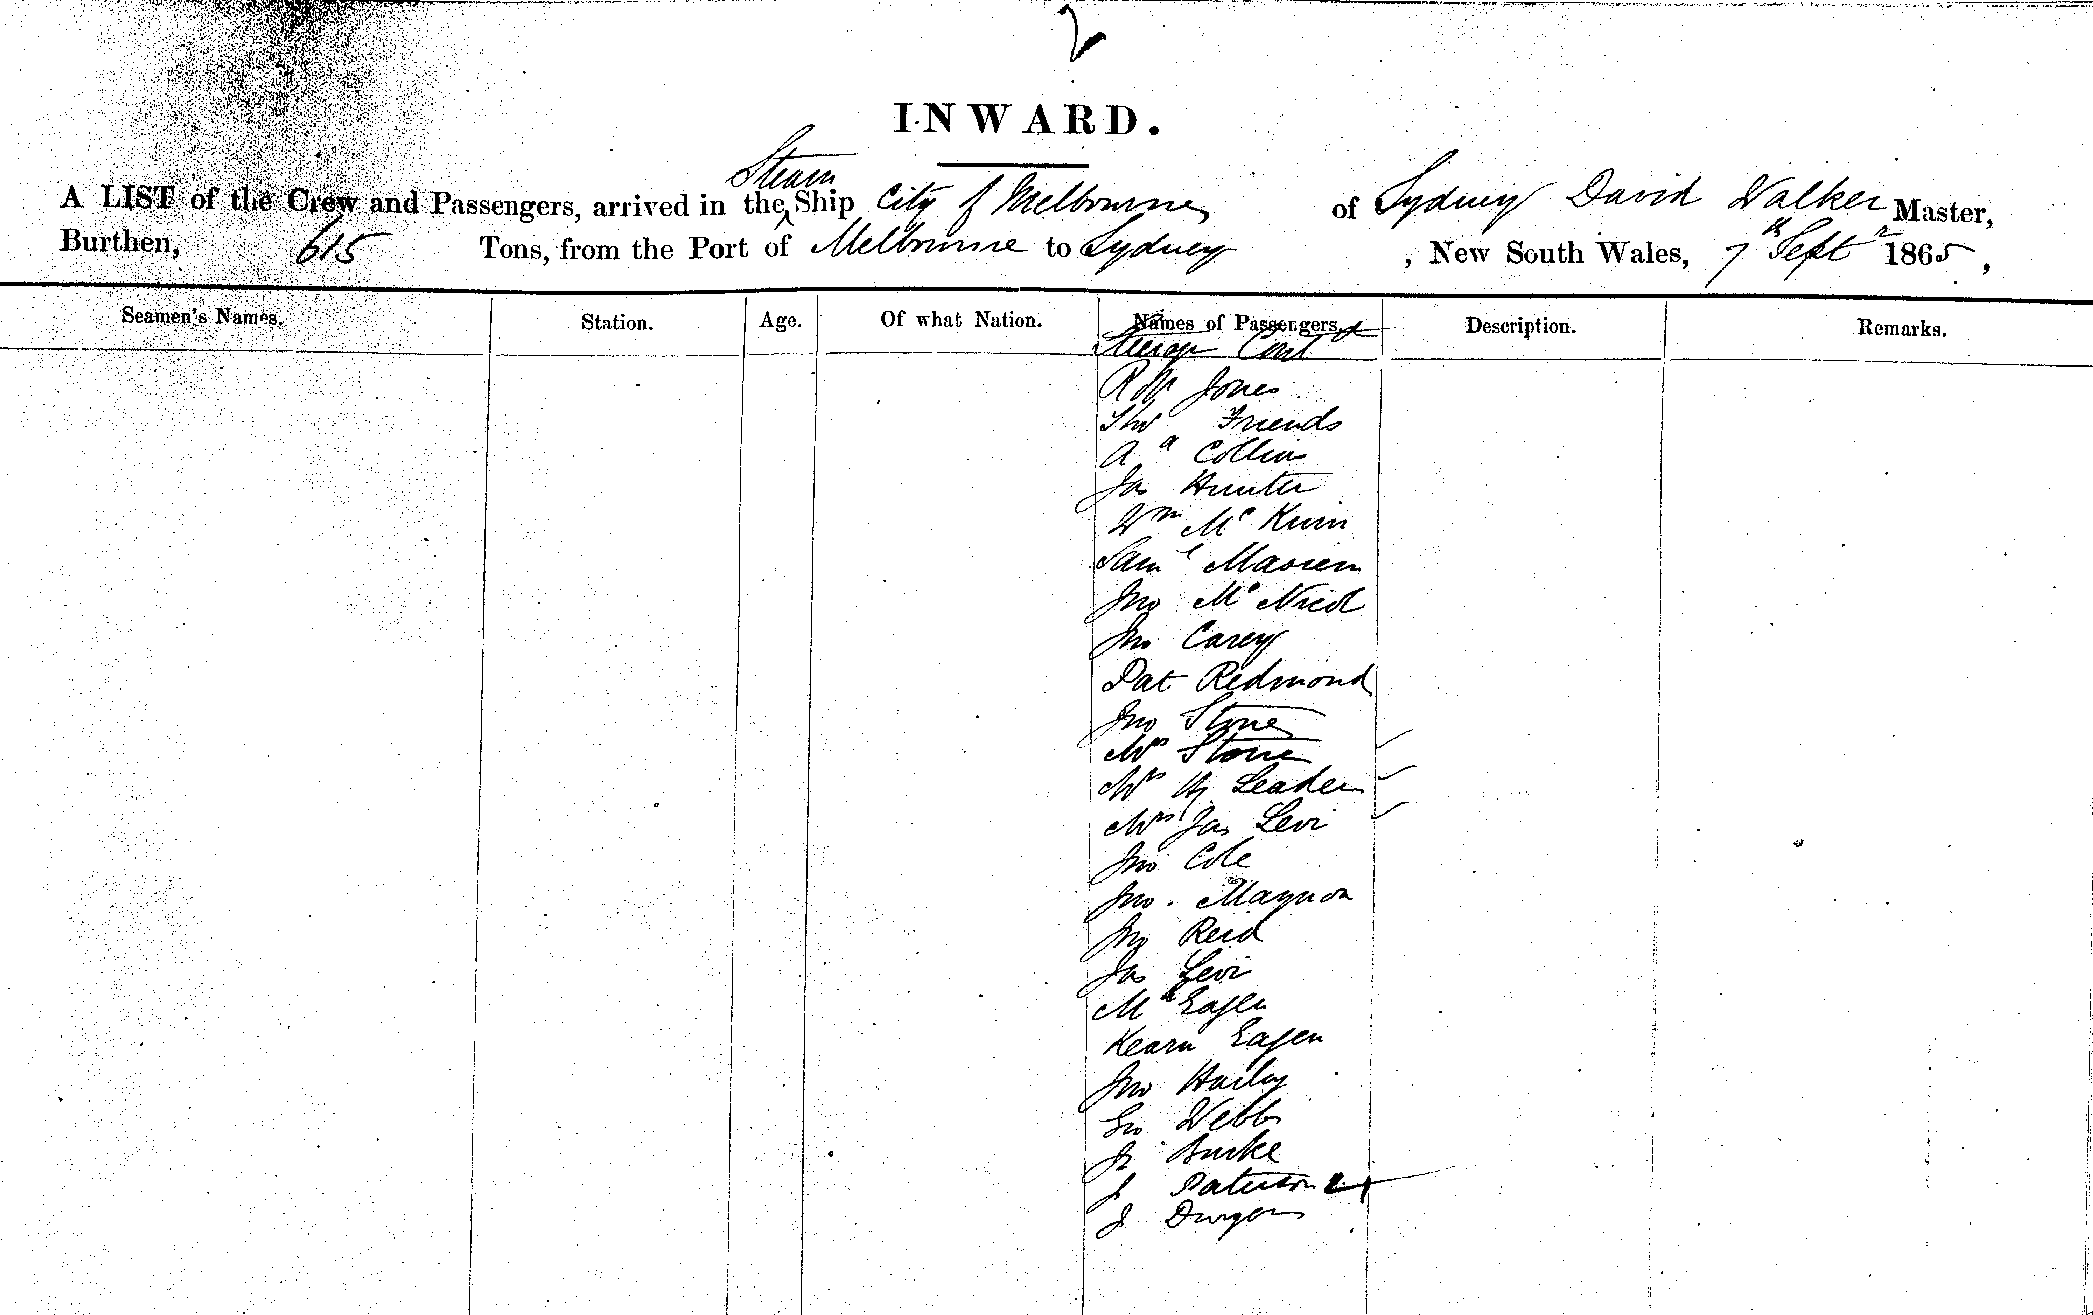 2
INWARD.
A LIST of the Crew and Passengers, arrived in the Steam Ship City of Melbourne of Sydney David Walker Master,
Burthen, 615 Tons, from the Port of Melbourne to Sydney, New South Wales, 7th Septr 1865,
Seamen's Names. Station. Age. Of what Nation. Names of Passengers. Description. Remarks.
Steerage Contd
Robt Jones
Thos Friends
Collins
Jas Hunter
Wm Mc
Saml
Jno Mc Nicol
Jno Carey
Pat Redmond
Jno Stone
Mrs Stone
Mrs Hy Leader
Mrs Jas Levi
Jno Cole
Jno. Magnon
Jno Reid
Jas Levi
Eagen
Kearn Eagen
Jno Hailey
Geo Webb
Burke
J Paterson
J